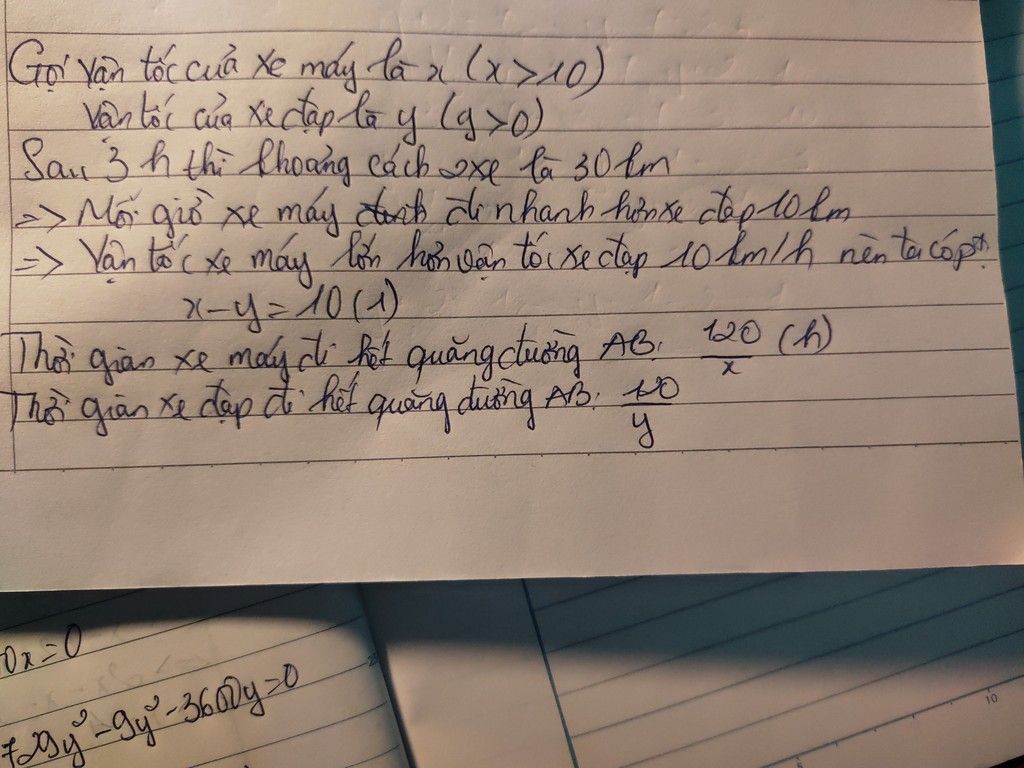 Gọi vận tốc của xe máy là x (x>10)
Vận tốc của xe đạp là y (y>0)
Sau 3h thì khoảng cách 2 xe là 30km
=> Mỗi giờ xe máy đi nhanh hơn xe đạp 10km
=> Vận tốc xe máy lớn hơn vận tốc xe đạp 10km/h nên ta có pt:
x-y=10(1)
Thời gian xe máy đi hết quãng đường AB: 120/x (h)
Thời gian xe đạp đi hết quãng đường AB: 120/y
0x=0
729y² - 9y² - 3600y=0
10